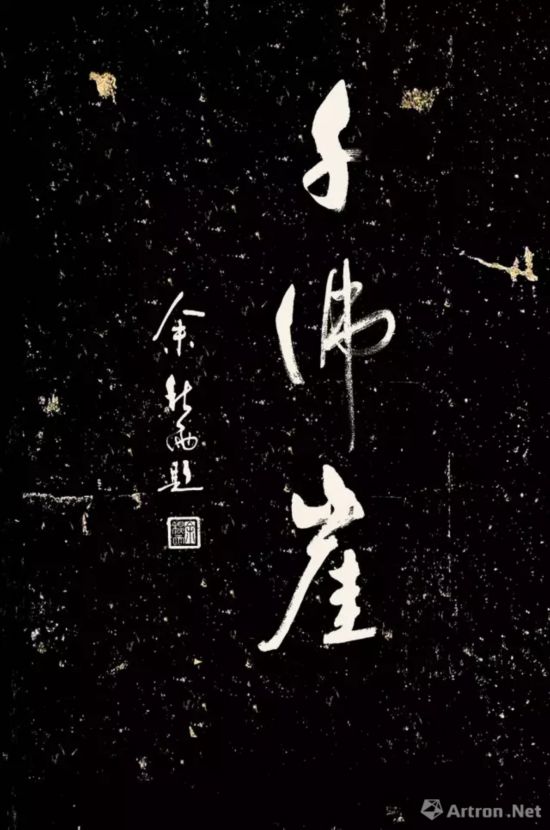 千佛崖
余秋雨题
Artron.Net